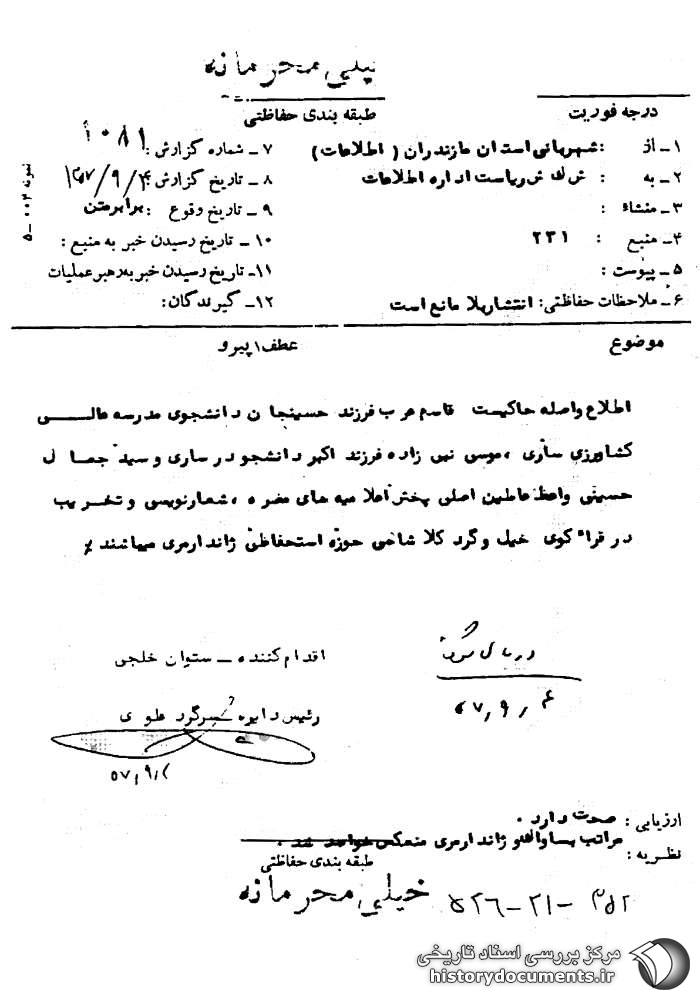 خیلی محرمانه
طبقه بندی حفاظتی
درجه فوریت
۱ـ از : شهربانی استان مازندران ( اطلاعات )
۲ـ به : ریاست اداره اطلاعات
۳ـ منشاء :
۴ـ منبع : ۲۳۱
۵ـ پیوست :
۶ـ ملاحظات حفاظتی: انتشاربلا مانع است
۷ـ شماره گزارش :
۸ـ تاریخ گزارش : ۳۵۷/۹/۴
۹ـ تاریخ وقوع : برابرمتن
۱۰ـ تاریخ رسیدن خبر به منبع :
۱۱ـ تاریخ رسیدن خبر به رهبر عملیات
۱۲ـ گیرندگان:
نمونه ۰۰۲ـ۵
موضوع
عطف / پیرو
اطلاع واصله حاکیست قاسم عرب فرزند حسینجان دانشجوی مدرسه عالی
کشاورزی ساری ، موسی نبی زاده فرزند اکبر دانشجو در ساری و سید جمال
حسینی واعظ عاملین اصلی پخش اعلامیه های مضره ، شعارنویسی و تخریب
در قراء کوی خیل و گرد کلا شاهی حوزه استحفاظی ژاندارمری میباشند
اقدام کننده ـ ستوان خلجی
رئیس دایره سرگرد علوی
۵۷/۹/۴
ارزیابی : صحت دارد .
نظریه : مراتب بساواک و ژاندارمری منعکس خواهد شد .
طبقه بندی حفاظتی
خیلی محرمانه
مرکز بررسی اسناد تاریخی
historydocuments.ir